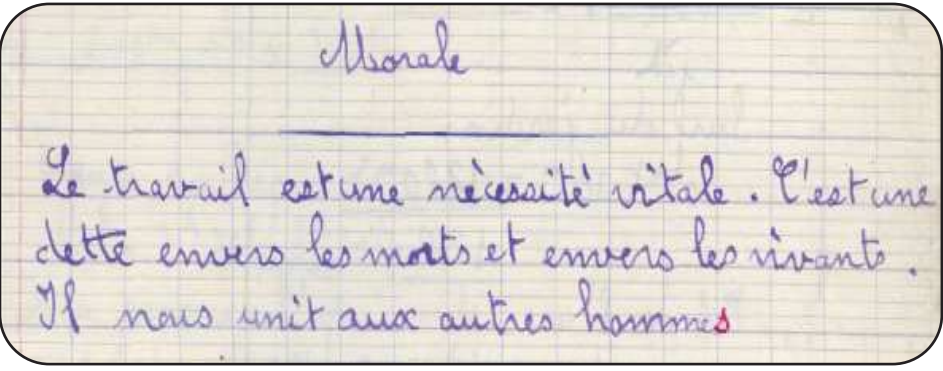 Morale
Le travail est une nécessité vitale. C'est une
dette envers les morts et envers les vivants.
Il nous unit aux autres hommes